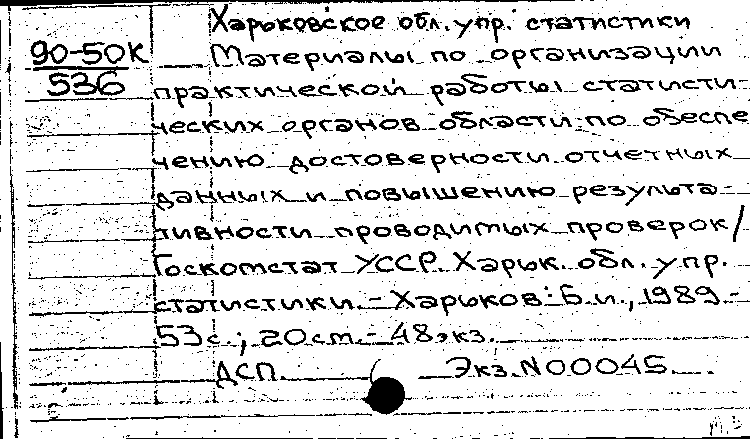 Харьковское обл. упр. статистики
90-50К
536
Материалы по организации
практической работы статисти-
ческих органов области по обеспе
чению достоверности отчетных
данных и повышению результа-
тивности проводимых проверок/
Госкомстат УССР. Харьк. обл. упр.
статистики. - Харьков: Б.и., 1989.-
53с.; 20 см. - 48 экз.
ДСП. Экз. N 00045.